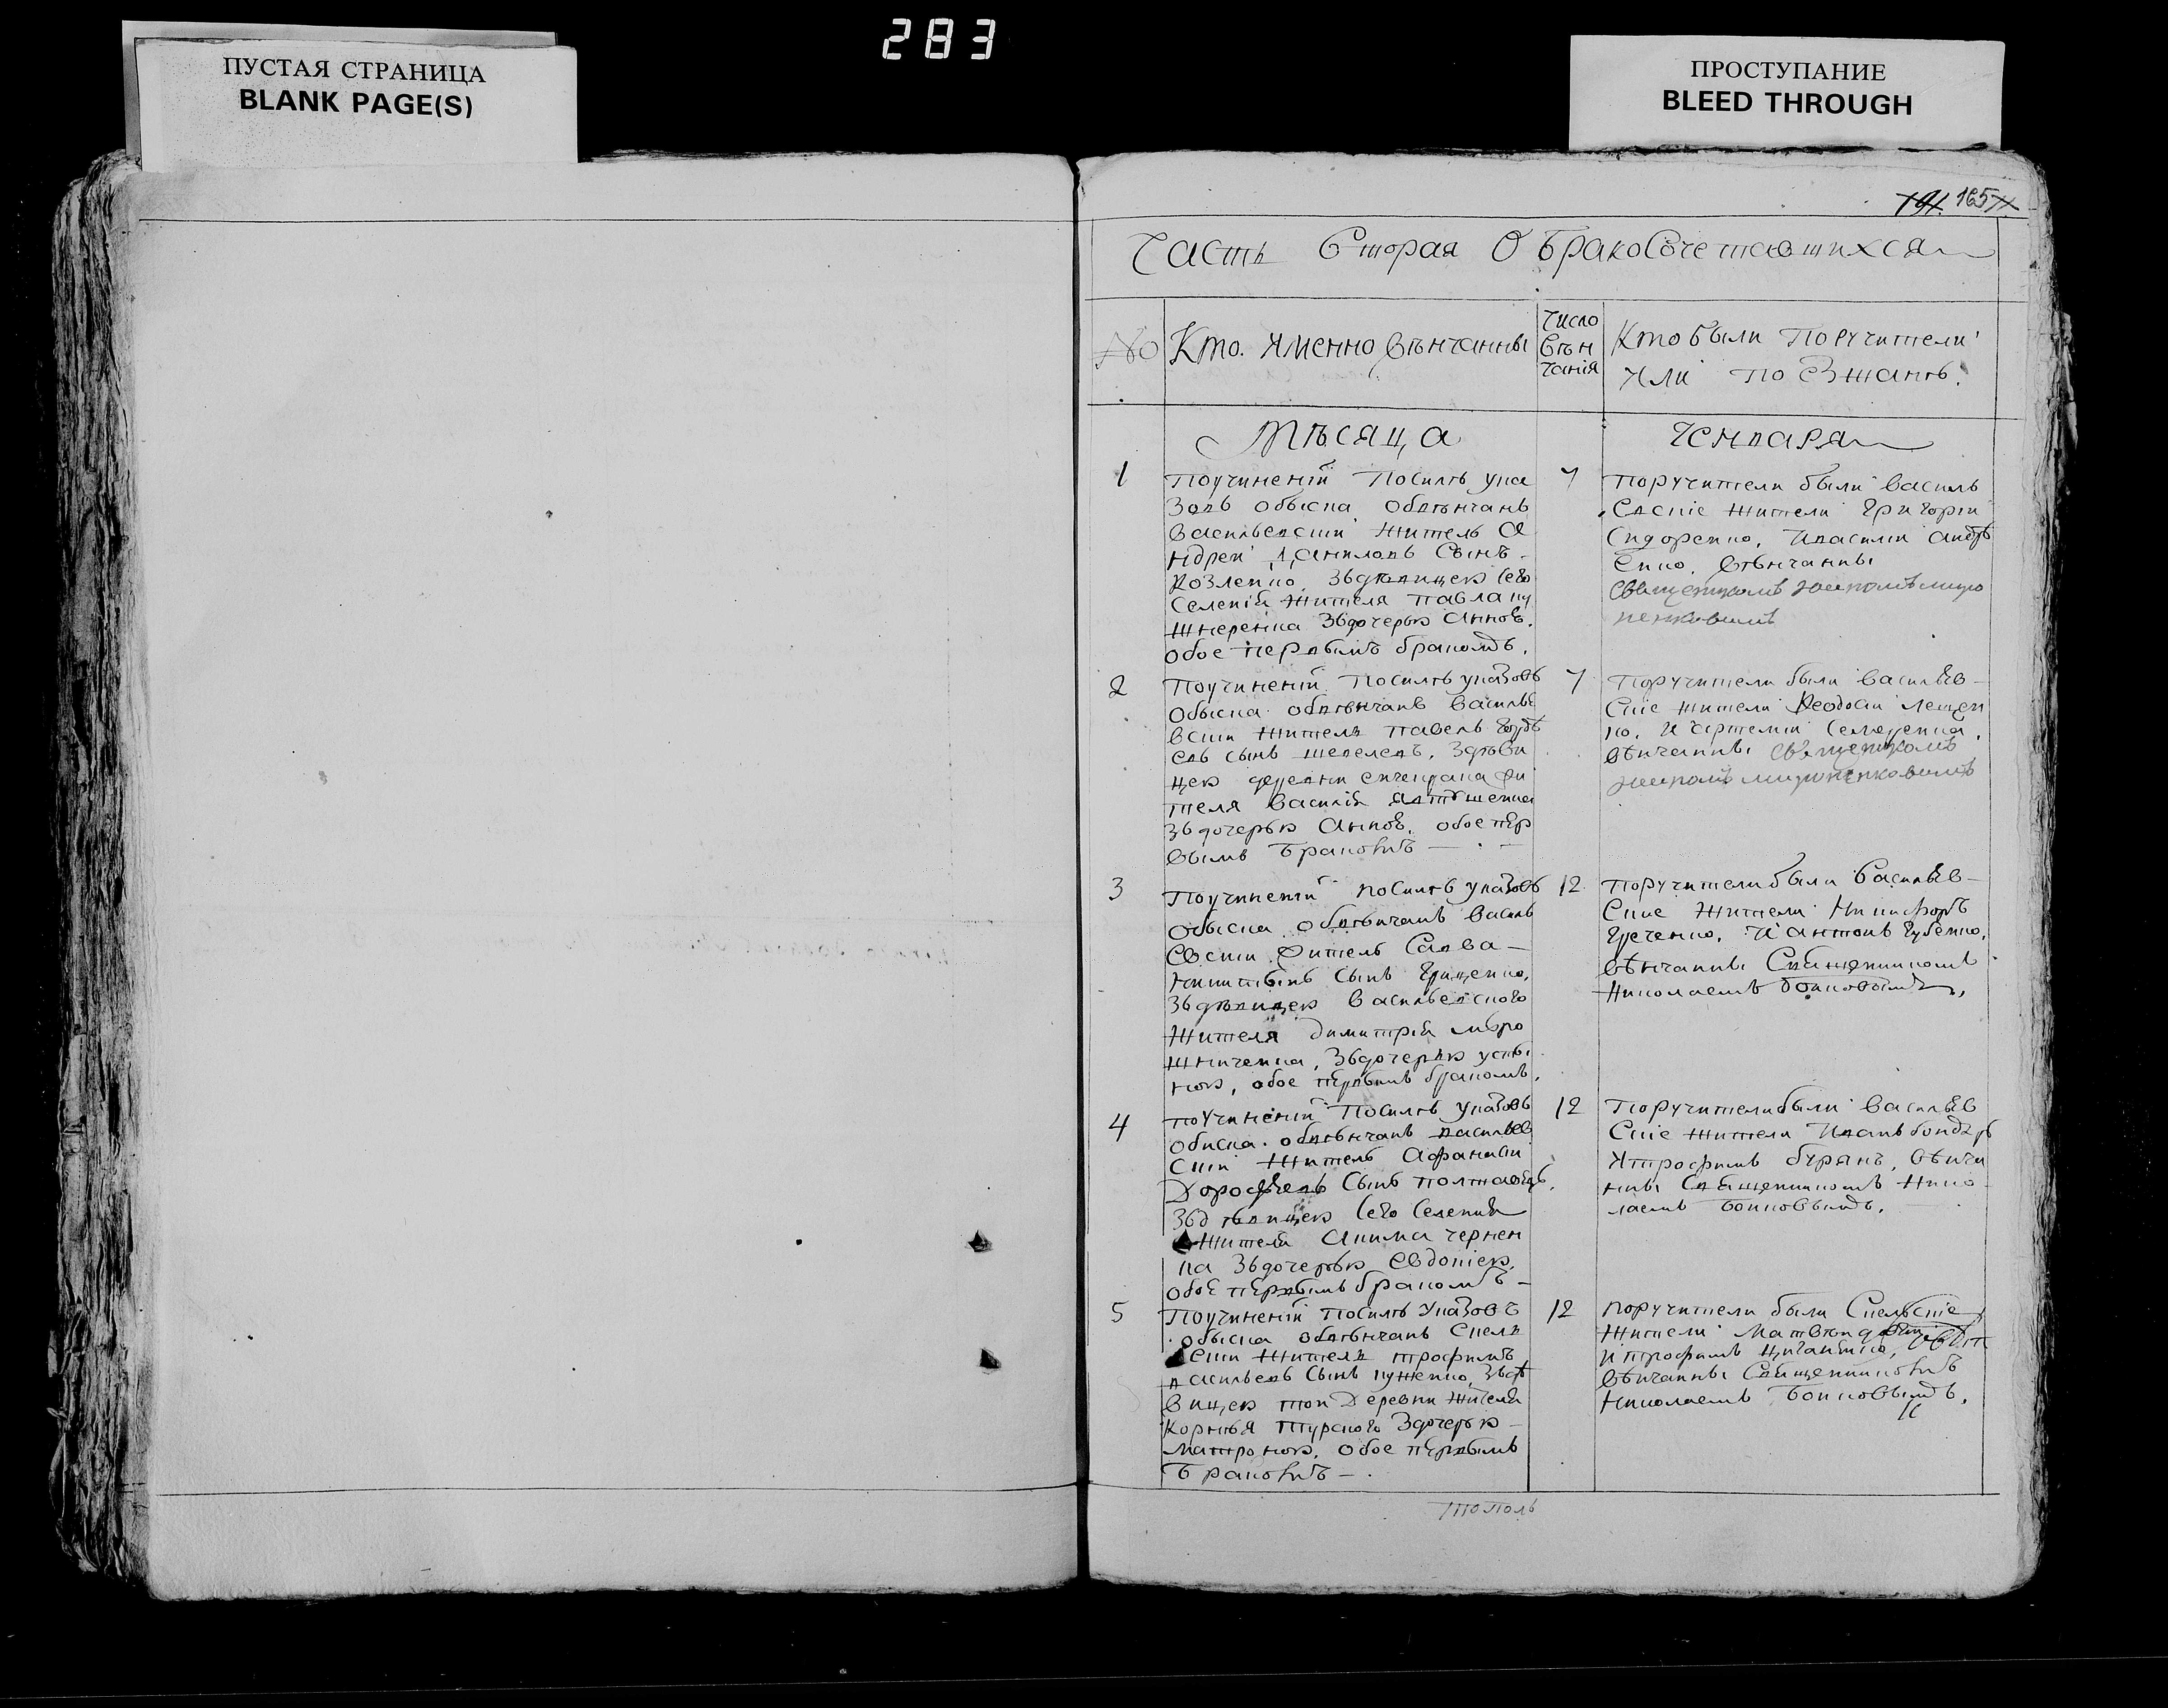 283
ПУСТАЯ СТРАНИЦА
BLANK PAGE(S)
ПРОСТУПАНИЕ
BLEED THROUGH
165
Часть Вторая О Бракосочетавшихся
No
Кто Именно Вѣнчанны
Число
Вѣн
чанія
Кто были Поручители
Или Поѣзжанѣ.
Мѣсяца
Генваря
1
Поучиненіи Посилѣ ука
зовъ обыска обвѣнчанъ
Васильевскіи Житель А
ндреи Даниловъ Сынъ
Козленко, Здѣвицею Сего
Селенія Жителя Павла
Здочерью Анною.
обое первымъ бракомъ.
7
Поручители были Василь
евскіе Жители Григоріи
Сидоренко, Ивасиліи Андрѣ
енко. Вѣнчанны
Священникомъ
2
Поучиненіи Посилѣ указовъ
Обыска обвѣнчанъ Василье
вскіи Житель Павелъ
сынъ Шепелевъ, Здѣви
цею деревни
теля Василія
Здочерью Анною, обое пер
вымъ Бракомъ
7
Поручители были Васильев
скіе Жители Феодосіи Лещен
ко, И Артеміи
вѣнчанны Священникомъ
3
Поучиненіи посилѣ указовъ
Обыска обвѣнчанъ Василь
евскіи Житель Савва
Никитинъ Сынъ Грищенко,
Здѣвицею Васильевского
Жителя Димитрія Миро
шниченка, Здочерью Усти
ною, обое первымъ бракомъ.
12
Поручители были Васильев
скіе Жители Никифоръ
Греченко, И Антонъ Губенко,
вѣнчанны Священникомъ
Николаемъ Бойковымъ,
4
Поучиненіи Посилѣ указовъ
Обиска обвѣнчанъ Васильев
скіи Житель Афанасіи
Дорофѣевъ Сынъ Полтавецъ,
Здѣвицею Сего Селенія
Жителя Акима Чернен
ка Здочерью Евдокіею,
обое первымъ бракомъ
12
Поручители были Васильев
скіе Жители Иванъ Бондарь
Итрофимъ Бурянъ, вѣнча
нны Священникомъ Нико
лаемъ Бойковымъ.
5
Поучиненіи Посилѣ Указовъ
обыска обвѣнчанъ
скіи Житель Трофимъ
Васильевъ Сынъ Нуженко, Здѣ
вицею тои Деревни Жителя
Корнѣя Турского Здочерью
Матроною, обое первымъ
Бракомъ
12
Поручители были
Жители
и Трофимъ Циганенко,
вѣнчанны Священникомъ
Николаемъ Бойковымъ.